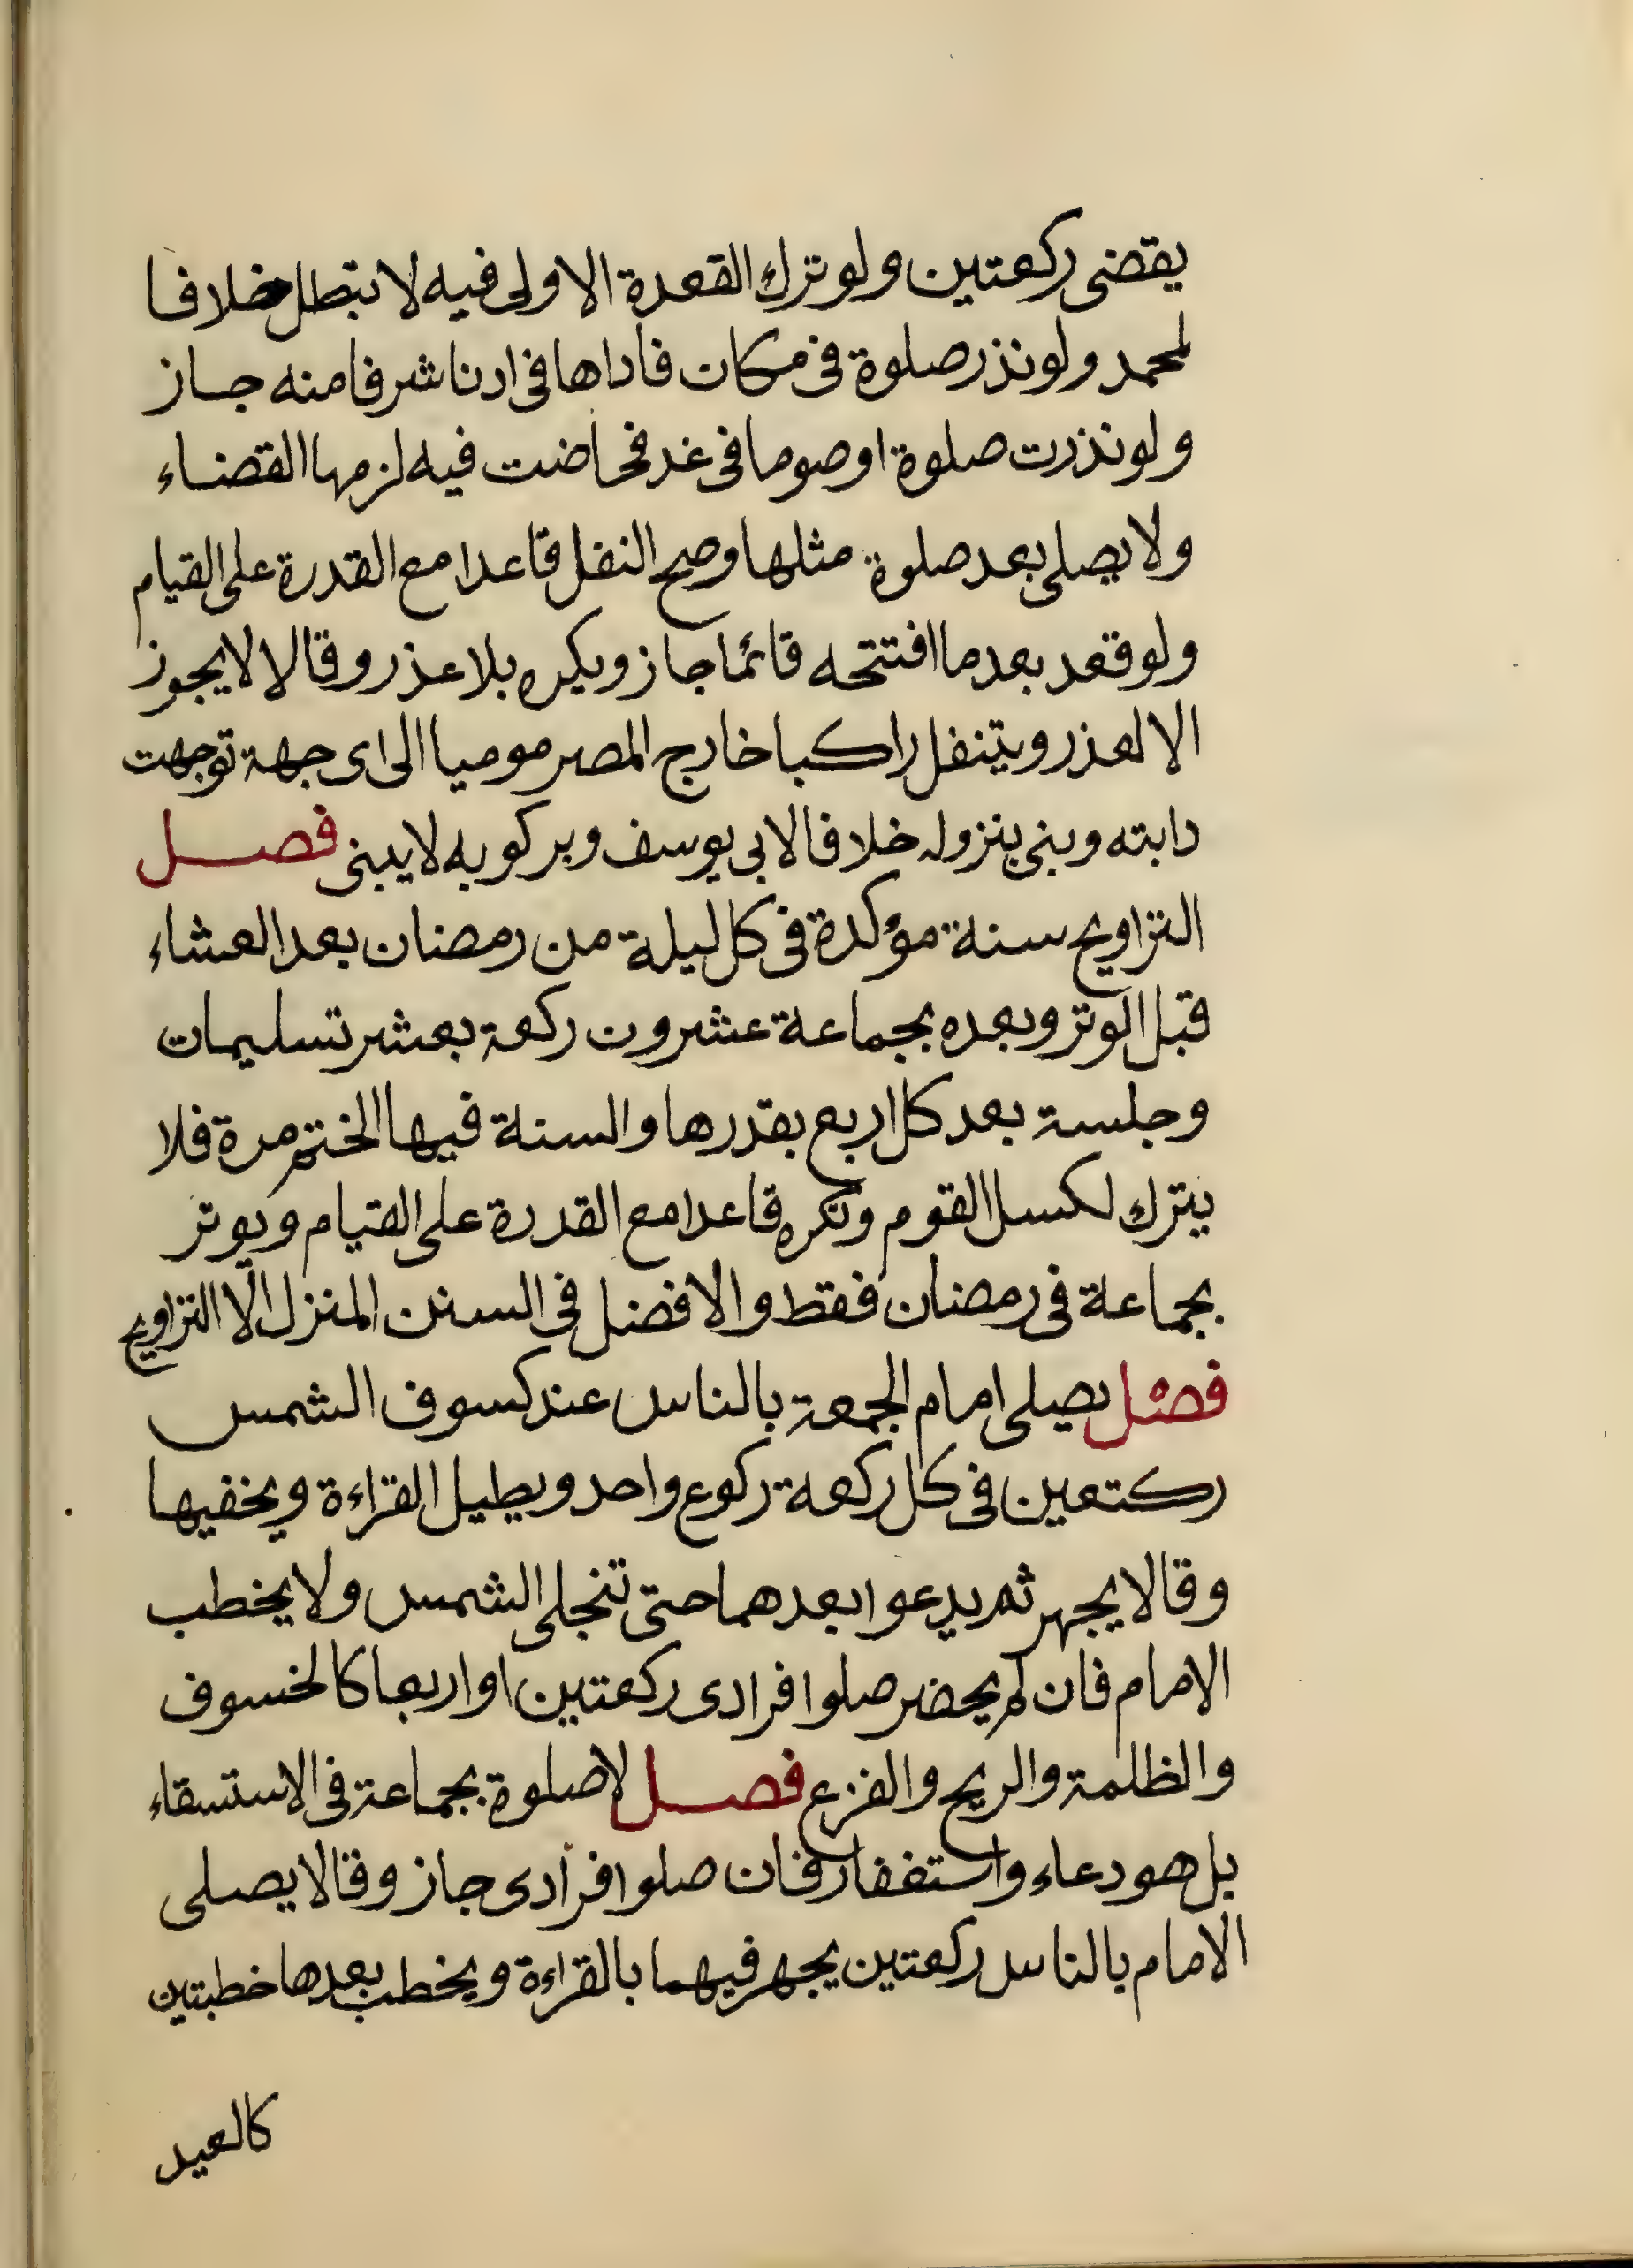 يقضى ركعتين ولو ترك القعدة الاولى فيه لا تبطل خلافا
لمحمد ولو نذر صلوة فى مكان فاداها فى ادنا شرفا منه جاز
ولو نذرت صلوة او صوما فى غد فحاضت فيه لزمها القضاء
ولا يصلى بعد صلوة مثلها وصح النفل قاعدا مع القدرة على القيام
ولو قعد بعد ما افتتحه قائما جاز ويكره بلا عذر وقالا لا يجوز
الا لعذر ويتنفل راكبا خارج المصر موميا الى اى جهة توجهت
دابته وبنى بنزوله خلافا لابى يوسف وبركوبه لا يبنى فصل
التراويح سنة مؤكدة فى كل ليلة من رمضان بعد العشاء
قبل الوتر وبعده بجماعة عشرون ركعة بعشر تسليمات
وجلسة بعد كل اربع بقدرها والسنة فيها الختم مرة فلا
يترك لكسل القوم وتكره قاعدا مع القدرة على القيام ويوتر
بجماعة فى رمضان فقط والافضل فى السنن المنزل الا التراويح
فصل يصلى امام الجمعة بالناس عند كسوف الشمس
ركتعين فى كل ركعة ركوع واحد ويطيل القراءة ويخفيها
وقالا يجهر ثم يدعوا بعدهما حتى تنجلى الشمس ولا يخطب
الامام فان لم يحضر صلوا فرادى ركعتين او اربعا كالخسوف
والظلمة والريح والفزع فصل لا صلوة بجماعة فى الاستسقاء
بل هو دعاء واستغفار فان صلوا فرادى جاز وقالا يصلى
الامام بالناس ركعتين يجهر فيهما بالقراءة ويخطب بعدها خطبتين
كالعيد